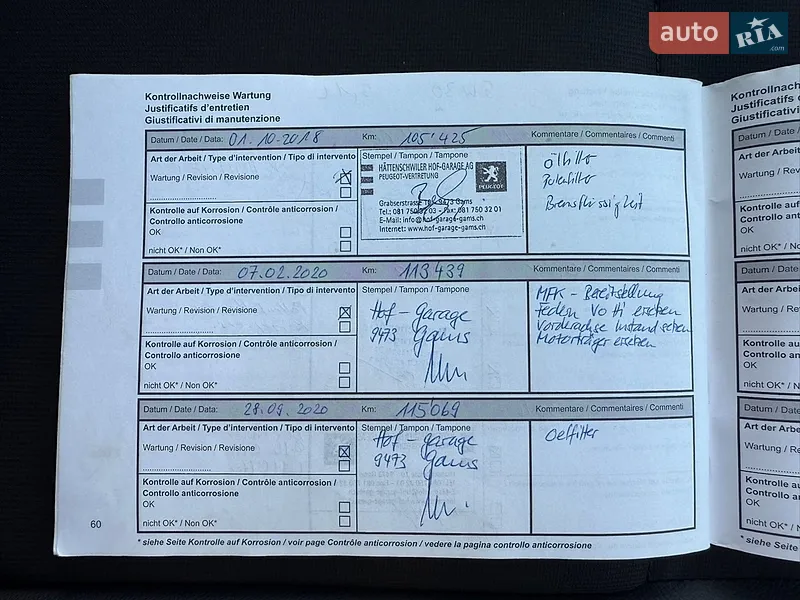 auto RIA .com
Kontrollnachweise Wartung
Justificatifs d'entretien
Giustificativi di manutenzione
Datum / Date / Data: 01.10-2018 Km: 105'425 Kommentare / Commentaires / Commenti
Art der Arbeit / Type d'intervention / Tipo di intervento Stempel / Tampon / Tampone
Wartung / Revision / Revisione
HÄTTENSCHWILER HOF-GARAGE AG
PEUGEOT-VERTRETUNG
PEUGEOT
Grabserstrasse 9473 Gams
Tel.: 081 750 32 03 - Fax: 081 750 32 01
E-Mail: info@hof-garage-gams.ch
Internet: www.hof-garage-gams.ch
Ölfilter
Pollenfilter
Bremsflüssigkeit
Kontrolle auf Korrosion / Contrôle anticorrosion /
Controllo anticorrosione
OK
nicht OK* / Non OK*
Datum / Date / Data: 07.02.2020 Km: 113439 Kommentare / Commentaires / Commenti
Art der Arbeit / Type d'intervention / Tipo di intervento Stempel / Tampon / Tampone
Wartung / Revision / Revisione
Hof-Garage
9473 Gams
MFK - Bereitstellung
Federn Vo Hi ersetzen
Vorderachse instand setzen
Motorträger ersetzen
Kontrolle auf Korrosion / Contrôle anticorrosion /
Controllo anticorrosione
OK
nicht OK* / Non OK*
Datum / Date / Data: 28.09.2020 Km: 115069 Kommentare / Commentaires / Commenti
Art der Arbeit / Type d'intervention / Tipo di intervento Stempel / Tampon / Tampone
Wartung / Revision / Revisione
Hof-Garage
9473 Gams
Oelfilter
Kontrolle auf Korrosion / Contrôle anticorrosion /
Controllo anticorrosione
OK
nicht OK* / Non OK*
60
* siehe Seite Kontrolle auf Korrosion / voir page Contrôle anticorrosion / vedere la pagina controllo anticorrosione